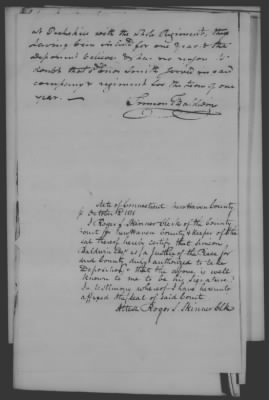 at Peekskill with the State Regiment, they
having been inlisted for one year & the
deponent believes & has no reason to
doubt that Simon Smith served in said
company & regiment for the term of one
year. —
Simeon Baldwin
State of Connecticut New Haven County
October 1818
I Roger S. Skinner Clerk of the County
Court for New Haven County & keeper of the
seal thereof hereby certify that Simeon
Baldwin Esqr is a Justice of the Peace for
said County duly authorized to take
Depositions & that the above is well
known to me to be his signature:
In testimony whereof I have hereunto
affixed the seal of said Court
Attest Roger S. Skinner Clk